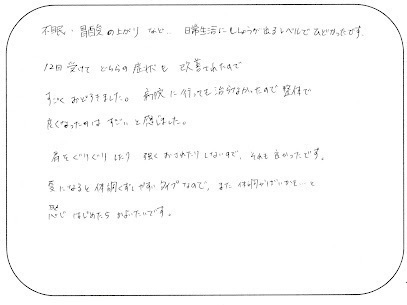 不眠・胃酸の上がり など、日常生活にししょうが出るレベルでひどかったです。
12回 受けて どちらの 症状も 改善されたので
すごく おどろきました。 病院に行っても治らなかったので 整体で
良くなったのは すごいと感じました。
肩をぐりぐりしたり 強くおさめたりしないので、それも良かったです。
気になると体調くずしやすいタイプなので、また 体調がわるいかも…と
感じ はじめたら かよいたいです。